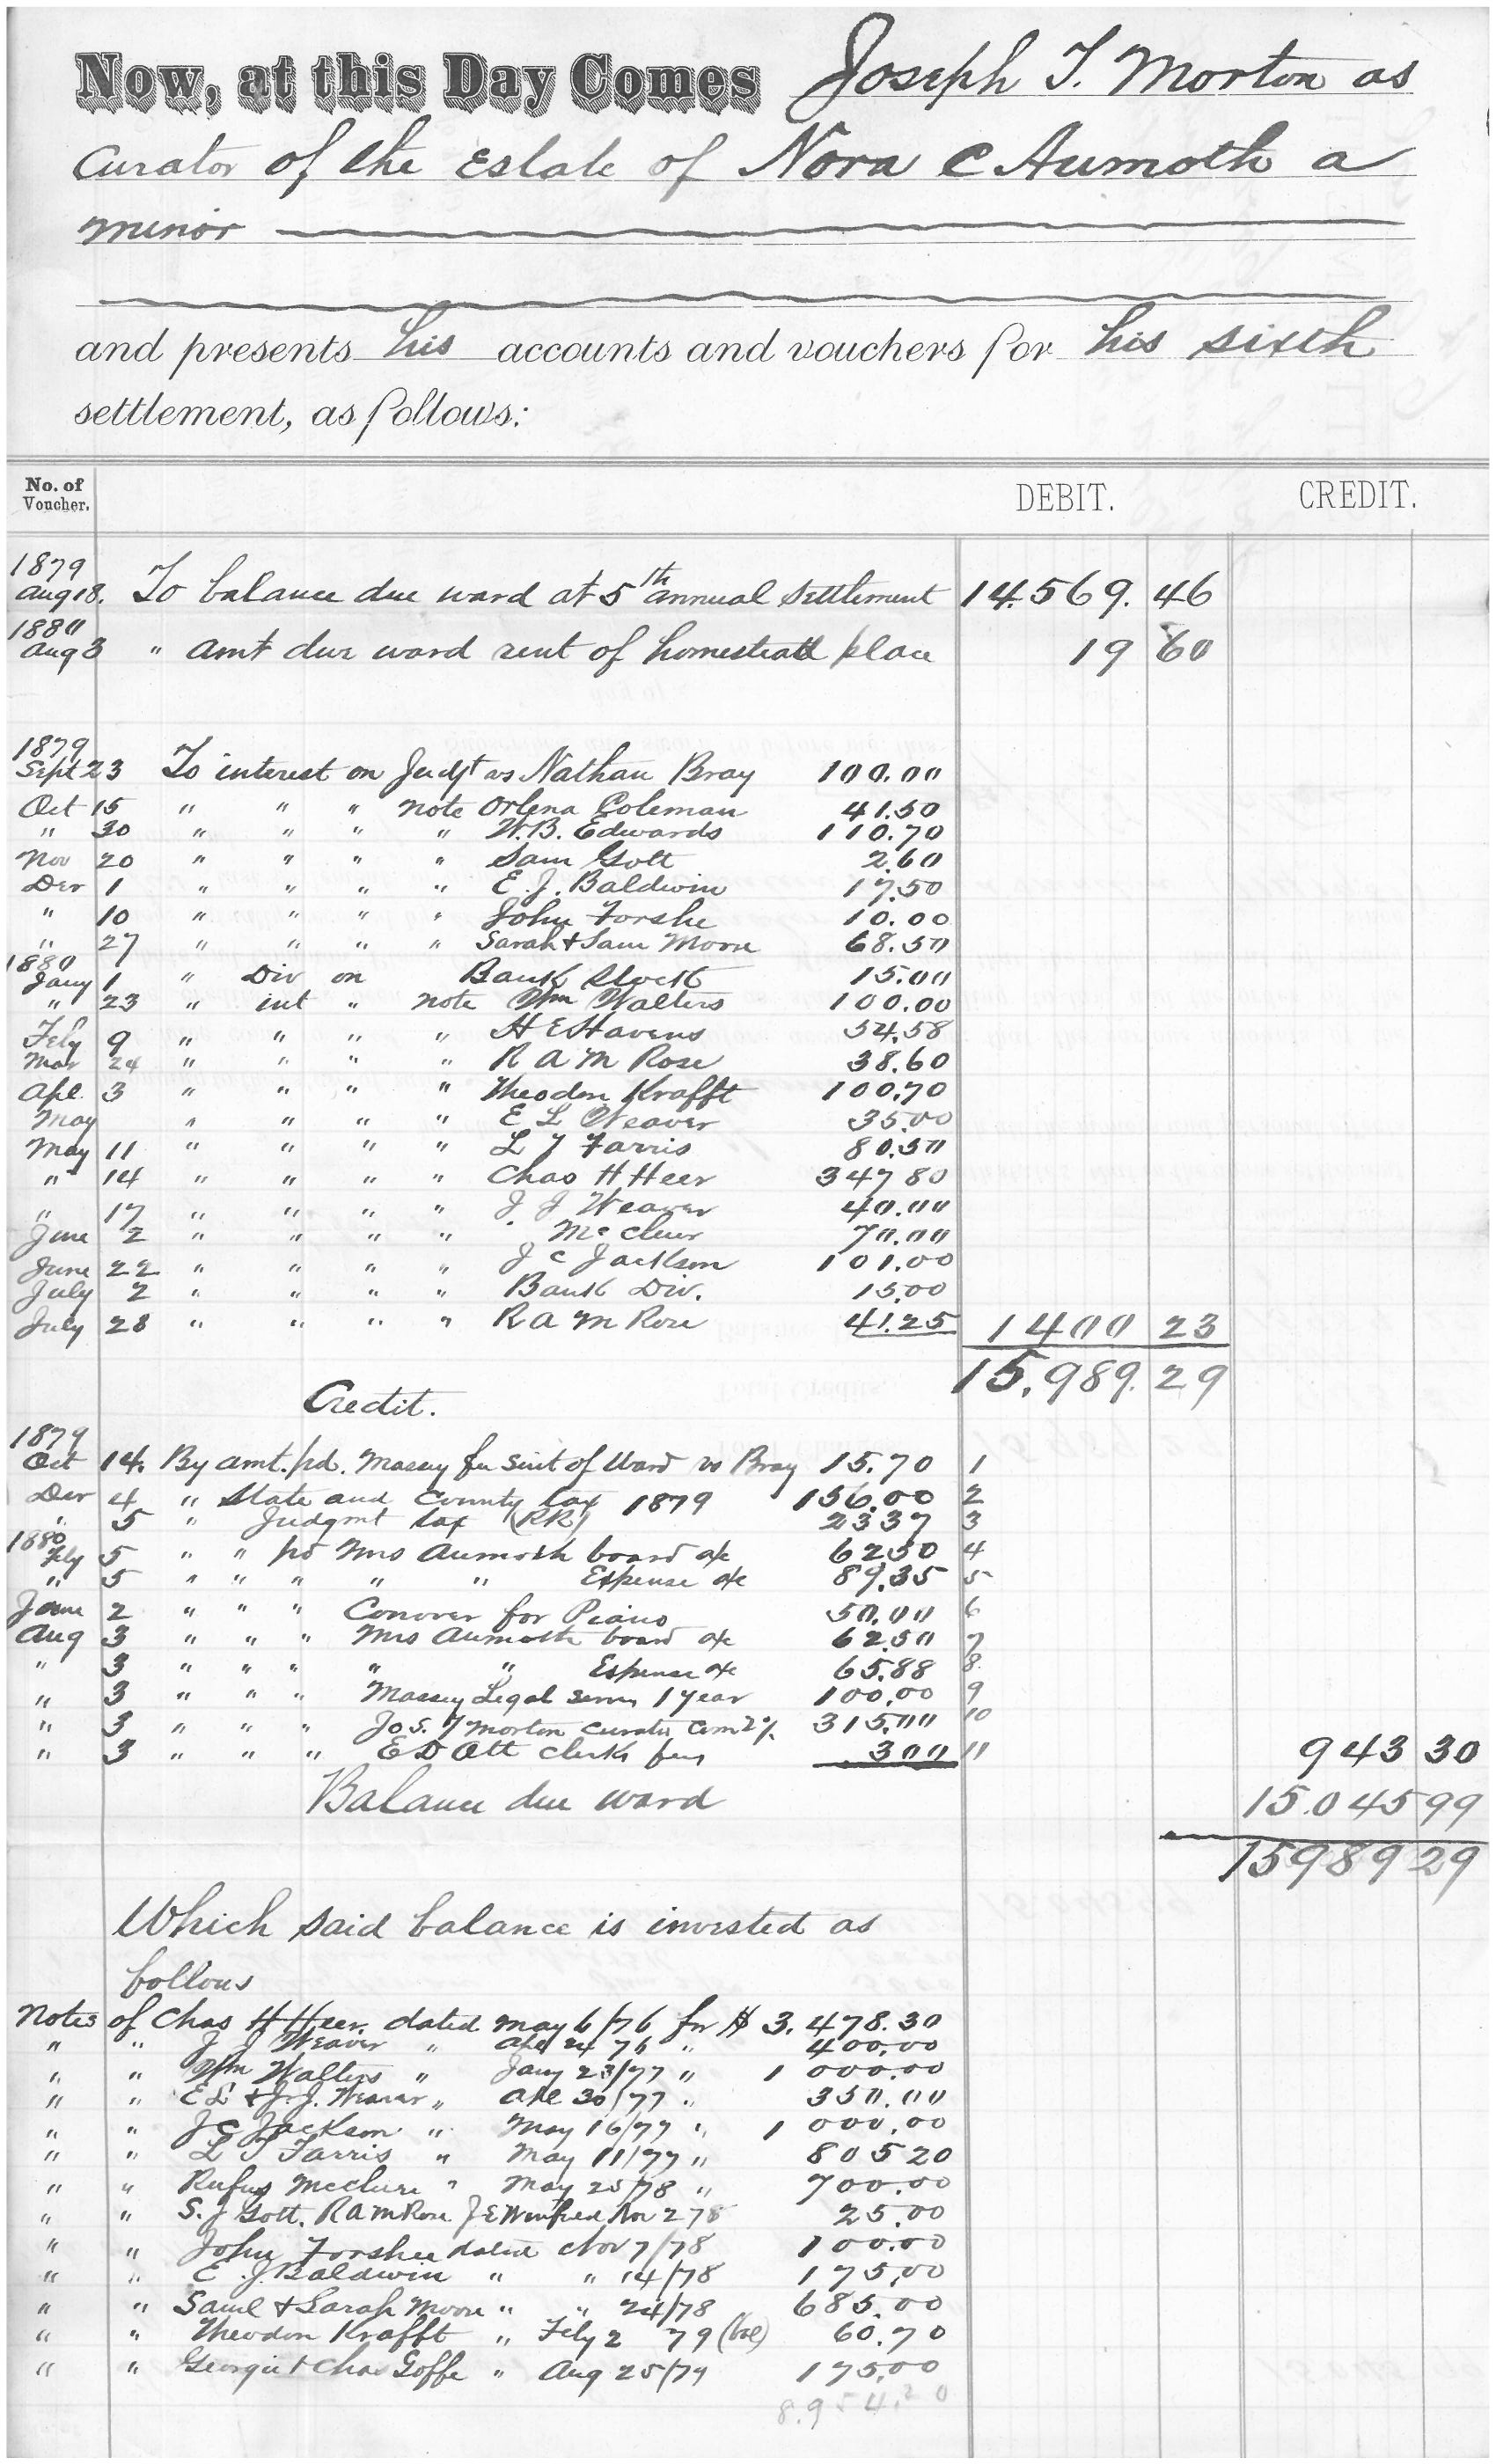 Now, at this Day Comes Joseph T. Morton as
Curator of the Estate of Nora C Aumoth a
minor
and presents his accounts and vouchers for his sixth
settlement, as follows:
No. of Voucher. DEBIT. CREDIT.
1879
Aug 18. To balance due ward at 5th annual settlement 14.569. 46
1880
Aug 3 " amt due ward rent of homestead place 19 60
1879
Sept 23 To interest on Judgt vs Nathan Bray 100.00
Oct 15 " " " note Orlena Coleman 41.50
" 30 " " " " W.B. Edwards 110.70
Nov 20 " " " " Sam Gott 2.60
Dec 1 " " " " E. J. Baldwin 17.50
" 10 " " " " John Forshe 10.00
" 27 " " " " Sarah & Sam Moore 68.50
1880
Jany 1 " Div on Bank Stock 15.00
" 23 " int " note Wm Walters 100.00
Feby 9 " " " " H E Havens 54.58
Mar 24 " " " " R A M Rose 38.60
Apl. 3 " " " " Theodore Krafft 100.70
May " " " " E L Weaver 35.00
May 11 " " " " L T Farris 80.50
" 14 " " " " Chas H Heer 347 80
" 17 " " " " J J Weaver 40.00
June 2 " " " " McClure 70.00
June 22 " " " " J C Jackson 101.00
July 2 " " " " Bank Div. 15.00
July 28 " " " " R A M Rose 41.25 1400 23
15,989. 29
Credit.
1879
Oct 14. By amt. pd. Massey for suit of Ward vs Bray 15.70 1
Dec 4 " State and County tax 1879 156.00 2
" 5 " Judgmt tax (RR) 23 37 3
1880
Feby 5 " " pd Mrs Aumoth board a/c 62 50 4
" 5 " " " " " Expense a/c 89.35 5
June 2 " " " Conover for Piano 50.00 6
Aug 3 " " " Mrs Aumoth board a/c 62.50 7
" 3 " " " " " Expense a/c 65.88 8.
" 3 " " " Massey Legal serves 1 year 100.00 9
" 3 " " " Jos. T Morton Curator Com 2% 315.00 10
" 3 " " " E D Ott clerks fees 3 00 11 943 30
Balance due ward 15.045 99
15989 29
Which said balance is invested as
follows
Notes of Chas H Heer. dated May 6/76 for $ 3.478.30
" " J J Weaver " Apl 24 76 " 400.00
" " Wm Walters " Jany 23/77 " 1 000.00
" " E L & J. J. Weaver " Apl 30/77 " 350.00
" " J C Jackson " May 16/77 " 1 000.00
" " L T Farris " May 11/77 " 805 20
" " Rufus McClure " May 25/78 " 700.00
" " S. J Gott. R A M Rose J E Winfred Nov 2 78 25.00
" " John Forshee dated Nov 7/78 100.00
" " E. J. Baldwin " " 14/78 175.00
" " Saml & Sarah Moore " " 24/78 685.00
" " Theodore Krafft " Feby 2 79 (bal) 60.70
" " Georgie & Chas Goffe " Aug 25/79 175.00
8.954.20